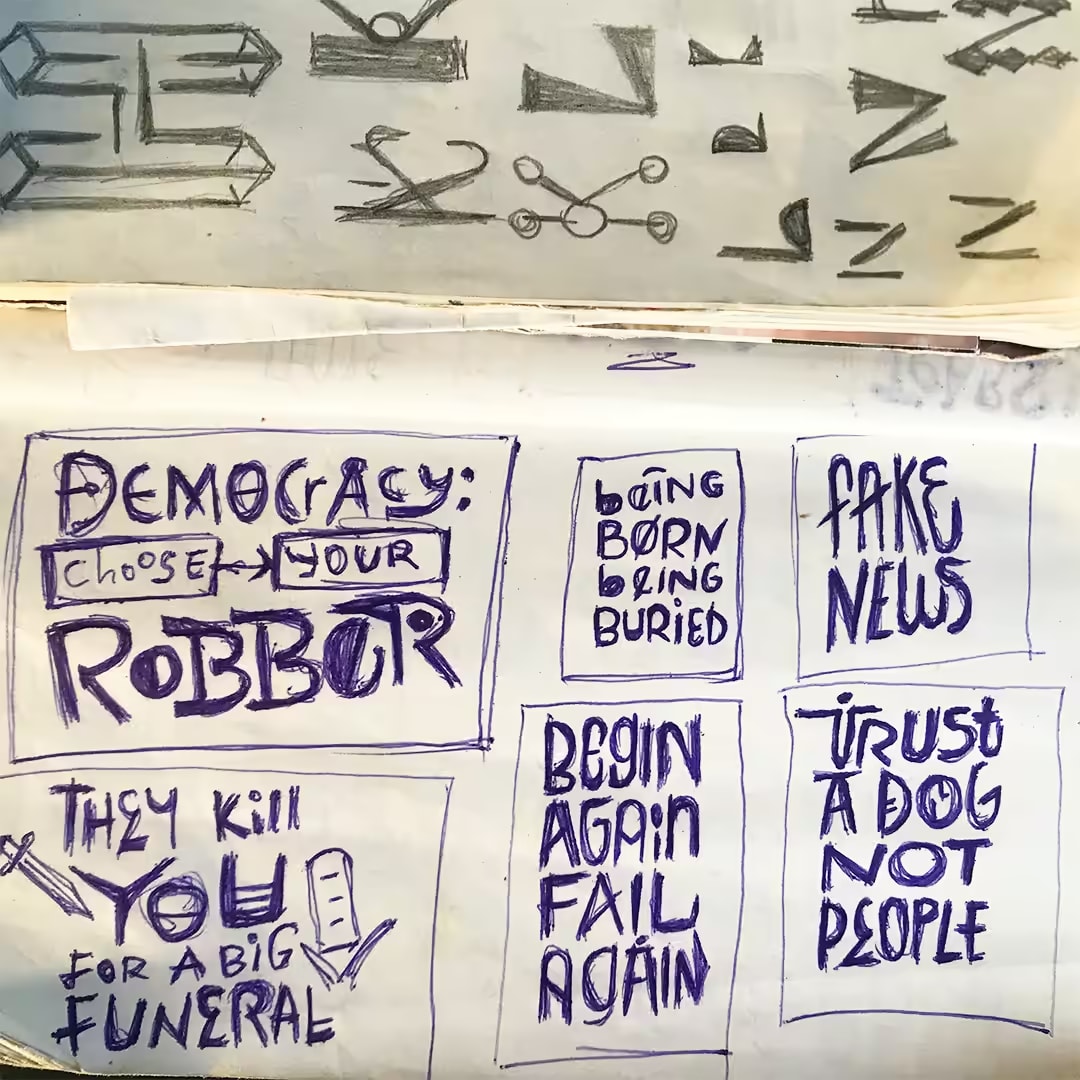 DEMOCRACY:
ChooSE YOUR
RoBBER
THEY Kill
YOU
FOR A BiG
FUNERAL
beING
BØRN
beING
BURiED
FAKE
NEWS
BEgIN
AGAiN
FAIL
AgAIN
iTRUSt
A DOG
NOT
PEOPLE